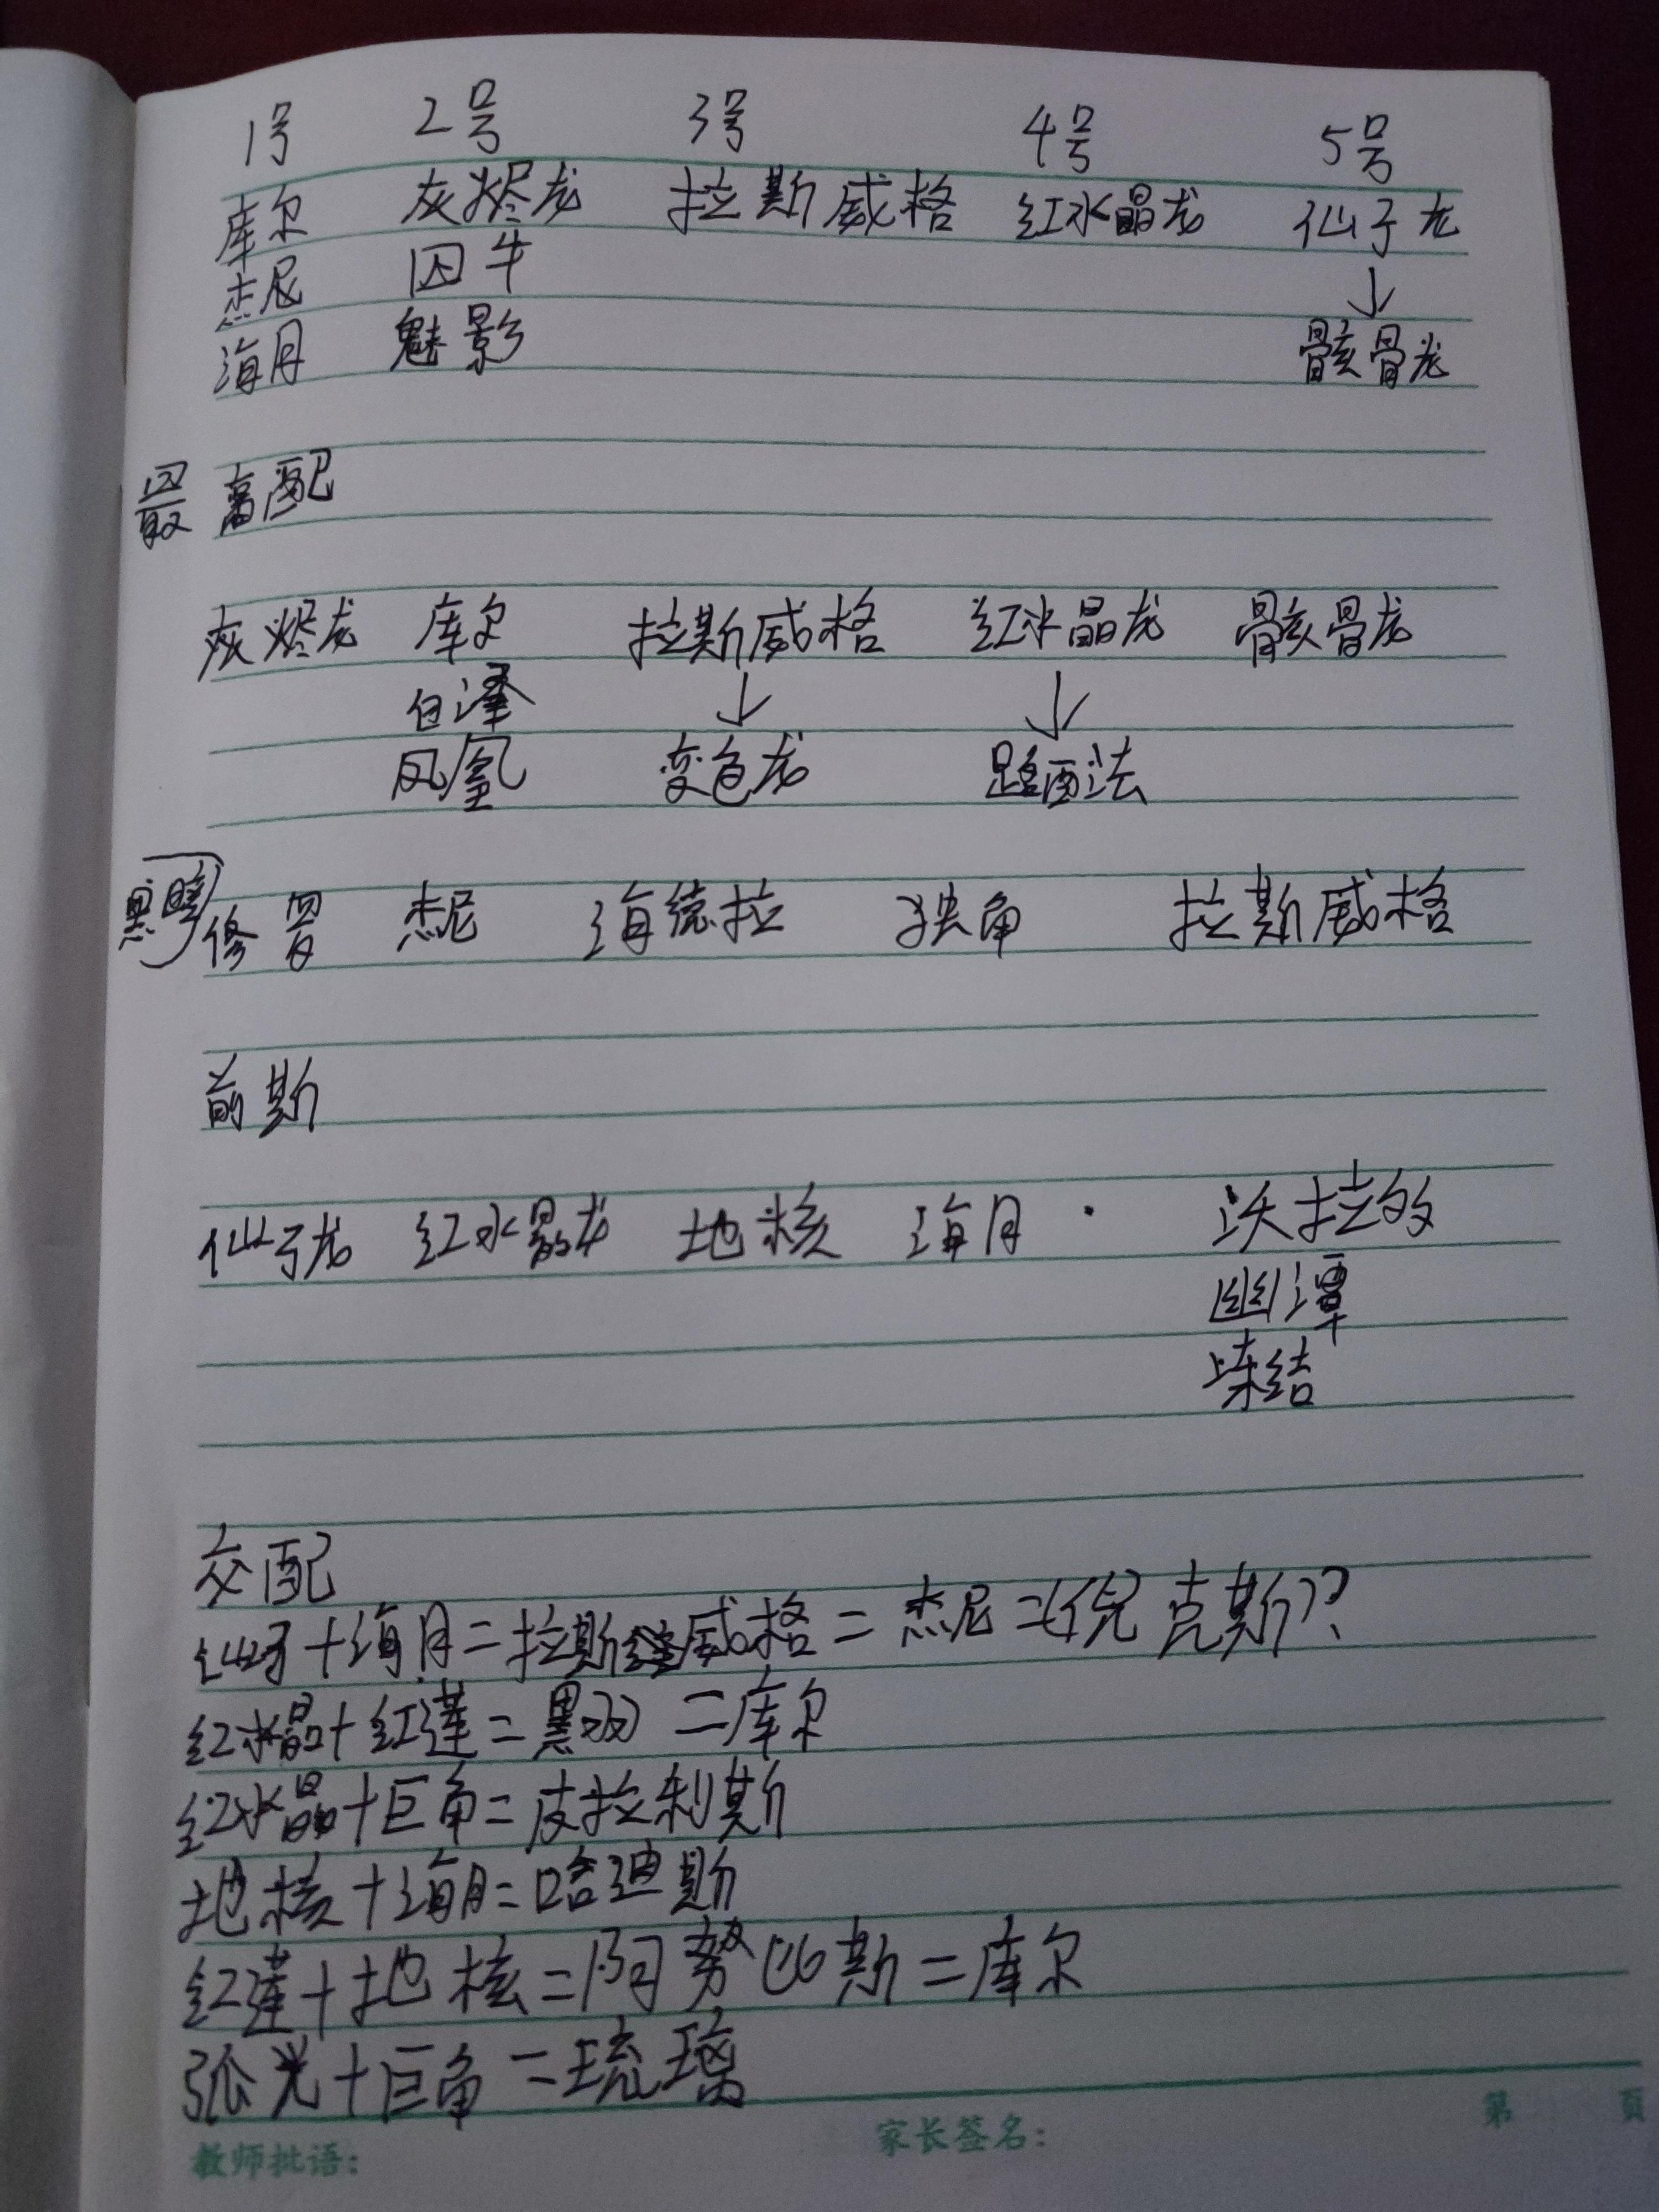 1号 2号 3号 4号 5号
库尔 灰烬龙 拉斯威格 红水晶龙 仙子龙
杰尼 囚牛 ↓
海月 魅影 骸骨龙
最高配
灰烬龙 库尔 拉斯威格 红水晶龙 骸骨龙
白泽 ↓ ↓
凤凰 变色龙 路西法
修罗 杰尼 海德拉 独角 拉斯威格
前斯
仙子龙 红水晶龙 地核 海月 · 沃拉多
幽谭
冻结
交配
仙子+海月=拉斯威格=杰尼=(倪克斯)?
红水晶+红莲=黑羽=库尔
红水晶+巨角=皮拉利斯
地核+海月=哈迪斯
红莲+地核=阿努比斯=库尔
弧光+巨角=琉璃
教师批语: 家长签名: 第 页